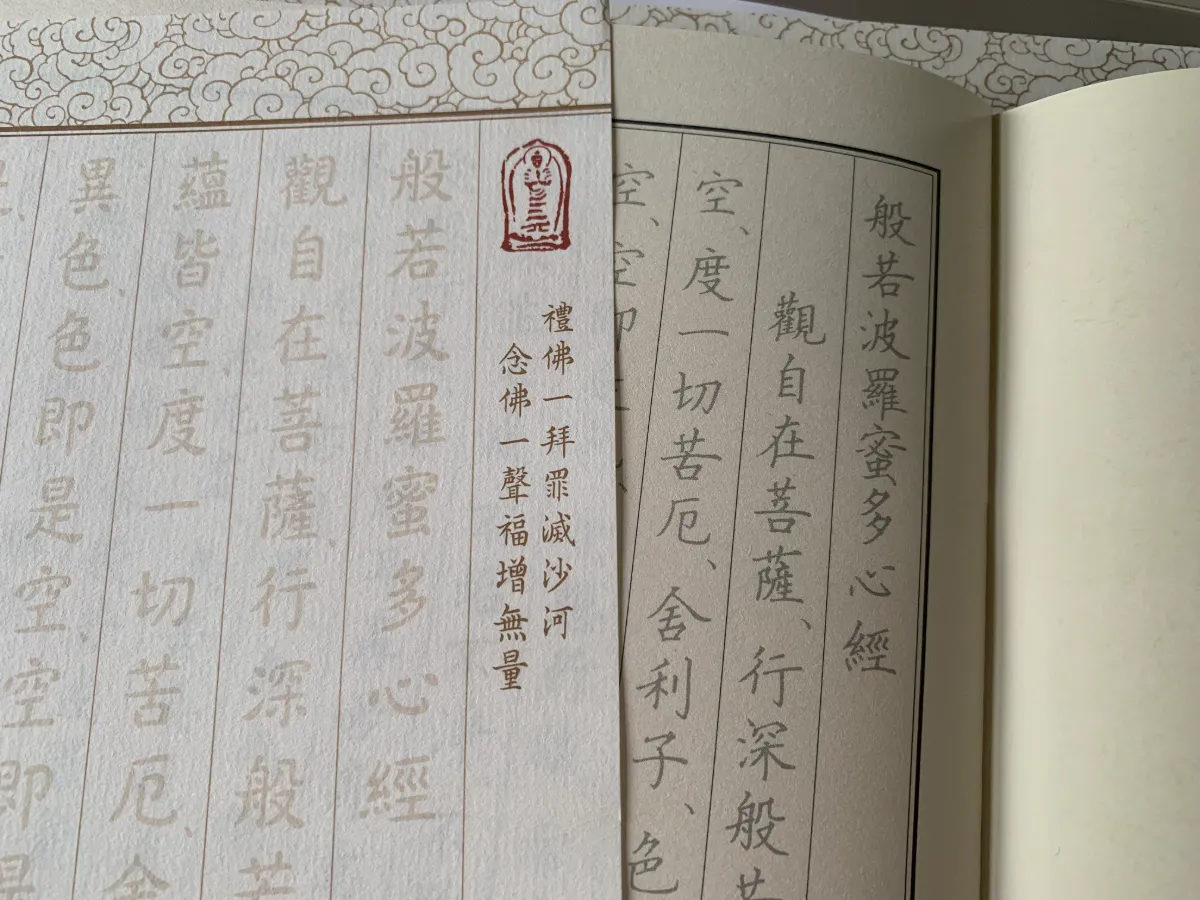 般若波羅蜜多心經
觀自在菩薩、行深般若
空、度一切苦厄、舍利子、色
空、空
禮佛一拜罪滅沙河
念佛一聲福增無量
般若波羅蜜多心經
觀自在菩薩、行深般若
蘊皆空、度一切苦厄、舍
異色、色即是空、空即是